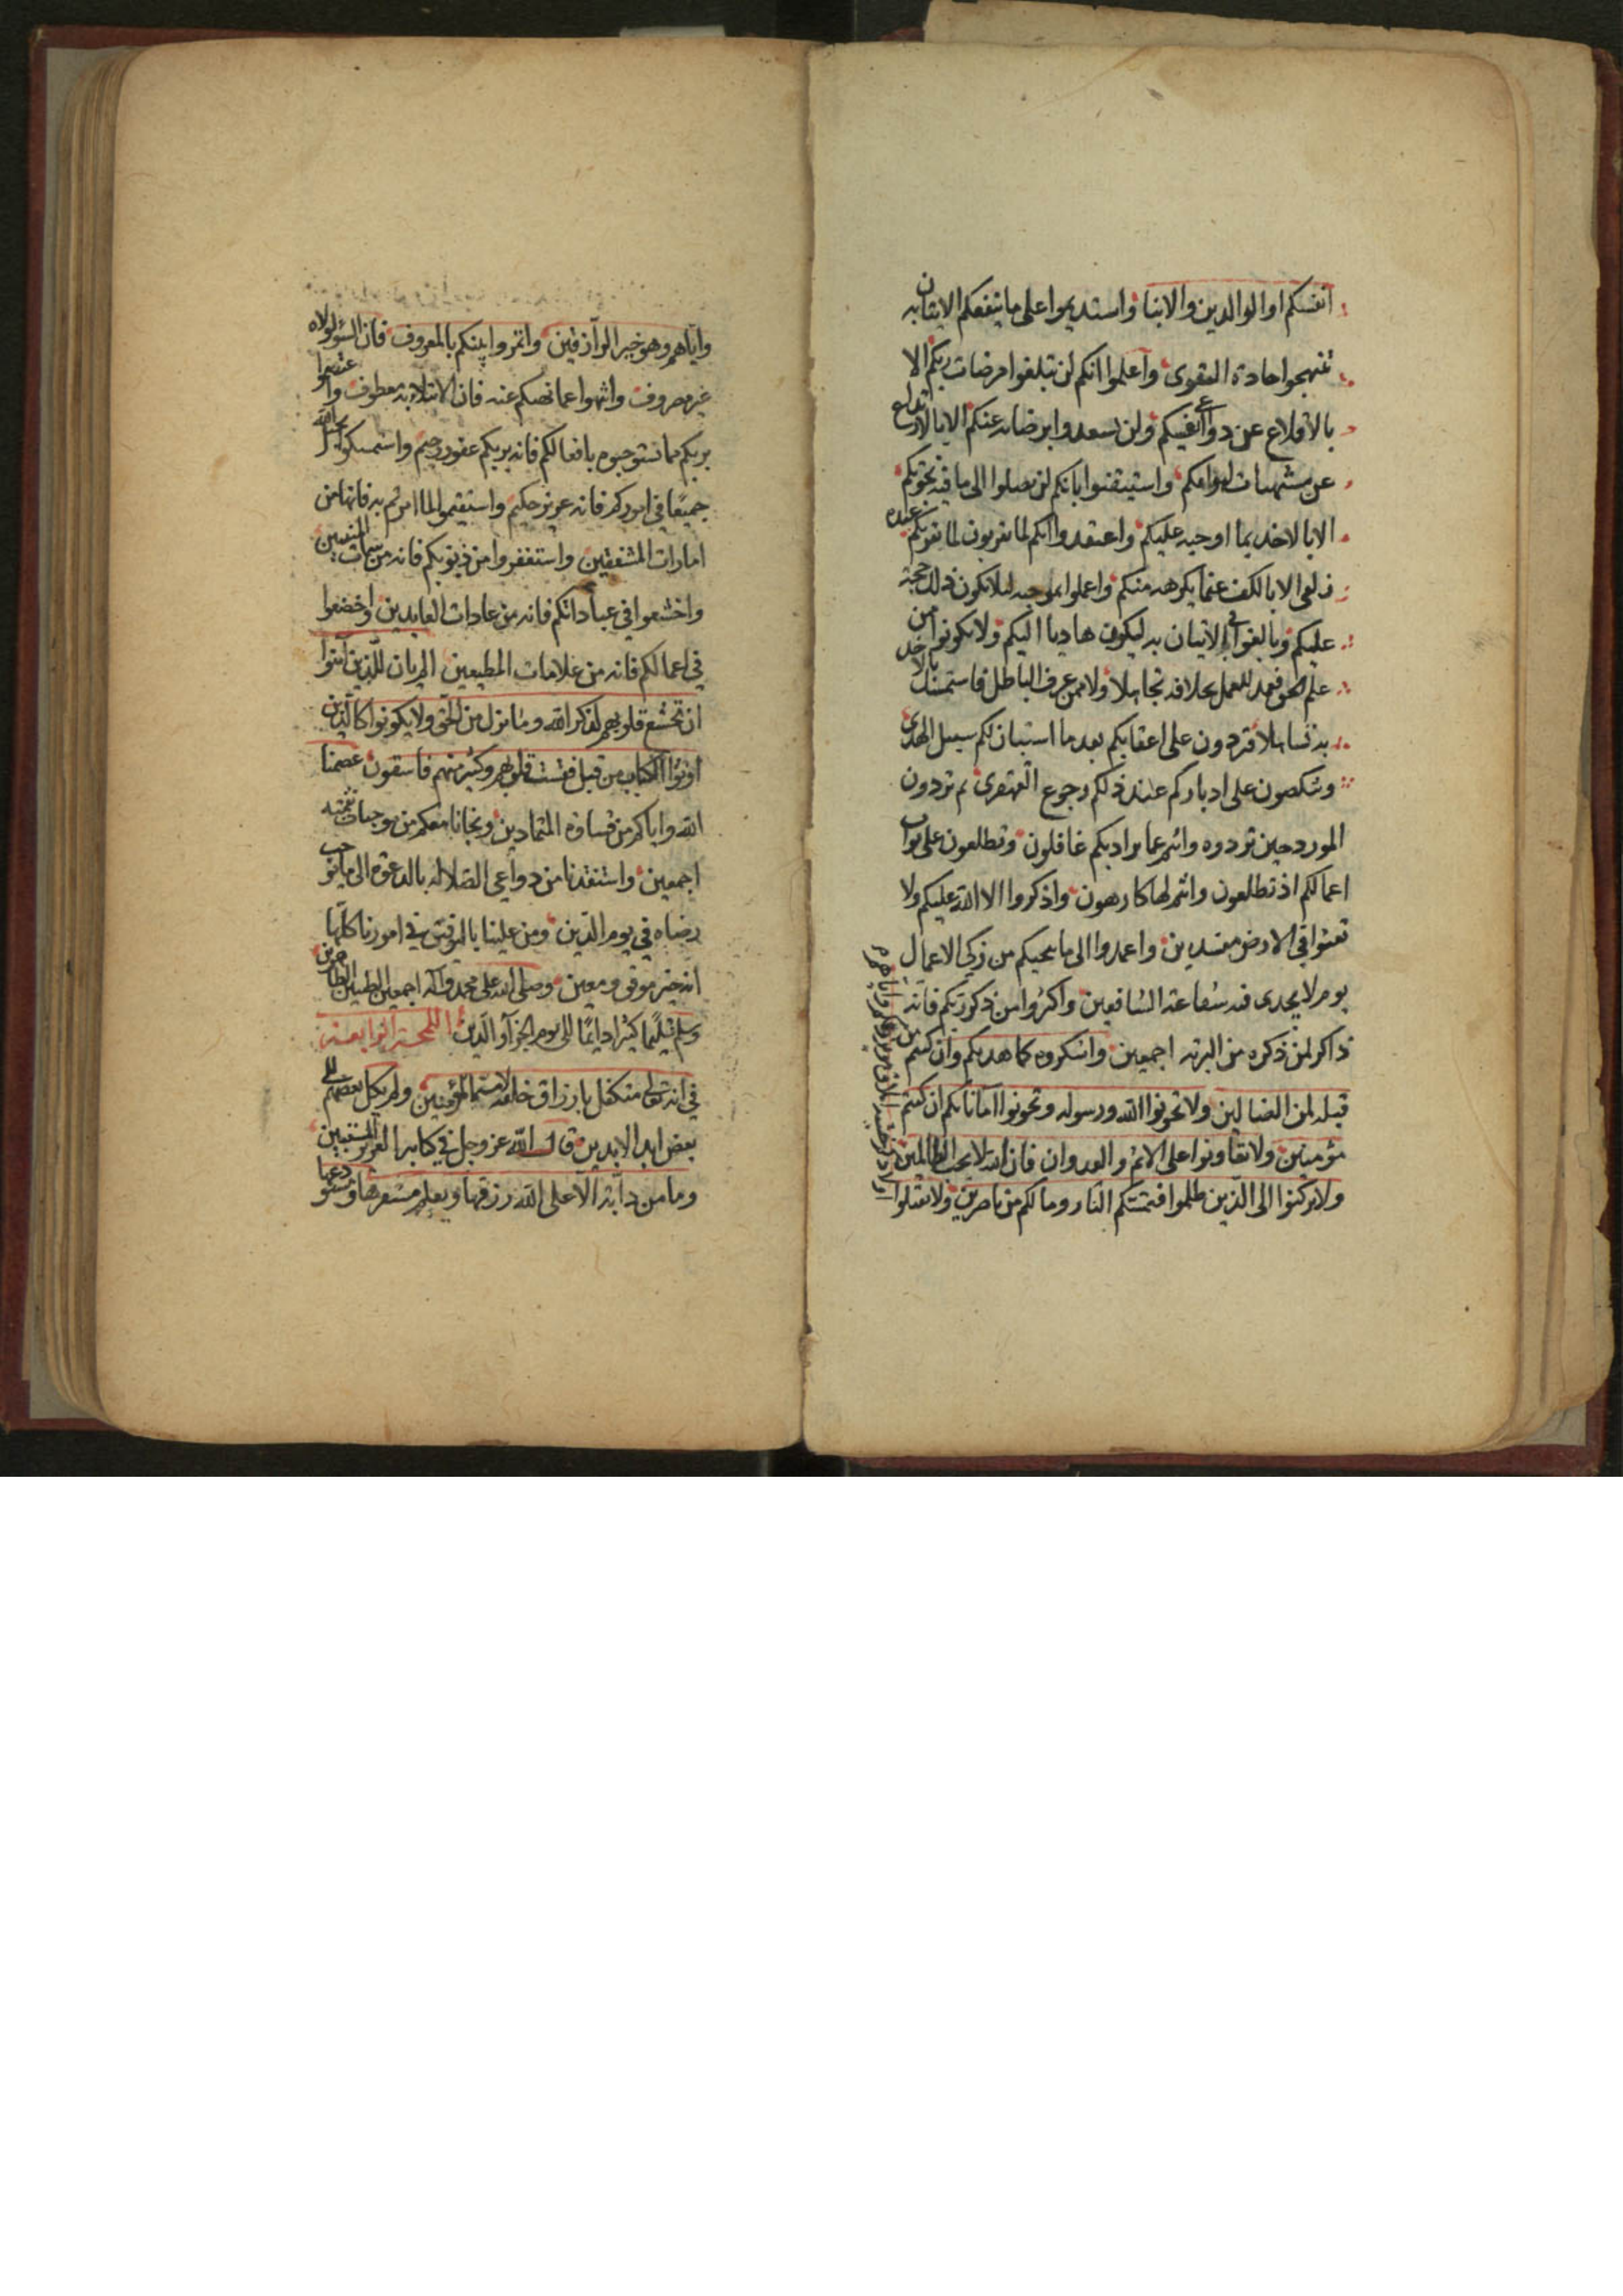 انفسكم او الوالدين والابنا واستديموا على ما ينفعكم الايتان به
تنهجوا جادة التقوى واعلموا انكم لن تبلغوا مرضات ربكم الا
بالاقلاع عن دواعي انفسكم ولن تسعدوا برضائه عنكم الا بالارتداع
عن مشتهيات اهوائكم واستيقنوا بانكم لن تصلوا الى ما فيه نجوتكم
الا بالاخذ بما اوجبه عليكم واعتقدوا انكم لما تقربون لما يقربكم عنده
زلفى الا بالكف عما يكرهه منكم واعلموا بموجبه ليلا يكون ذلك حجة
عليكم وبالغوا في الاتيان به ليكون هاديا اليكم ولا تكونوا ممن
علم الحق فعمد للعمل بخلافه تجاهلا ولا ممن عرف الباطل فاستمسك بالاخذ
به تساهلا فتردون على اعقابكم بعد ما استبان لكم سبيل الهدى
وتنكصون على ادباركم عند ذلكم رجوع القهقرى ثم تردون
المورد حين تردوه وانتم عما يراد بكم غافلون وتطلعون على ثواب
اعمالكم اذ تطلعون وانتم لها كارهون واذكروا الاء الله عليكم ولا
تعثوا في الارض مفسدين واعمدوا الى ما ينجيكم من زكي الاعمال
يوم لا يجدى فيه شفاعة الشافعين واكثروا من ذكر ربكم فانه
ذاكر لمن ذكره من البرية اجمعين واشكروه كما هديكم وان كنتم من
قبله لمن الضالين ولا تخونوا الله ورسوله وتخونوا اماناتكم ان كنتم
مؤمنين ولا تعاونوا على الاثم والعدوان فان الله لا يحب الظالمين
ولا تركنوا الى الذين ظلموا فتمسكم النار وما لكم من ناصرين ولا تقتلوا
اولادكم خشية املاق نحن نرزقكم واياهم
واياهم وهو خير الرازقين واتمروا بينكم بالمعروف فان
غير مصروف وانتهوا عما نهيكم عنه فان الابتلاء به معطوف واعتصموا
بربكم مما تستوجبوه بافعالكم فانه بربكم غفور رحيم واستمسكوا بحبل الله
جميعا في اموركم فانه عزيز حكيم واستقيموا لما امرتم به فانها من
امارات المشفقين واستغفروا من ذنوبكم فانه من سمات المنيبين
واخشعوا في عباداتكم فانه من عادات العابدين واخضعوا
في اعمالكم فانه من علامات المطيعين الم يان للذين آمنوا
ان تخشع قلوبهم لذكر الله وما نزل من الحق ولا يكونوا كالذين
اوتوا الكتاب من قبل فقست قلوبهم وكثير منهم فاسقون عصمنا
الله واياكم من قساوة المتمادين ونجانا معكم من موجبات نقمته
اجمعين واستنقذنا من دواعي الضلالة بالدعوة الى ما يوجب
رضاه في يوم الدين ومن علينا بالتوفيق في امورنا كلها
انه خير موفق ومعين وصلى الله على محمد وآله اجمعين الطيبين الطاهرين
وسلم تسليما كثيرا دايما الى يوم الجزآء والدين اللمحة الرابعة
في انه تعالى متكفل بارزاق خلقه لا سيما المؤمنين ولم يكل بعضهم الى
بعض ابد الابدين قال الله عز وجل في كتابه العزيز
وما من دآبة الا على الله رزقها ويعلم مستقرها ومستودعها